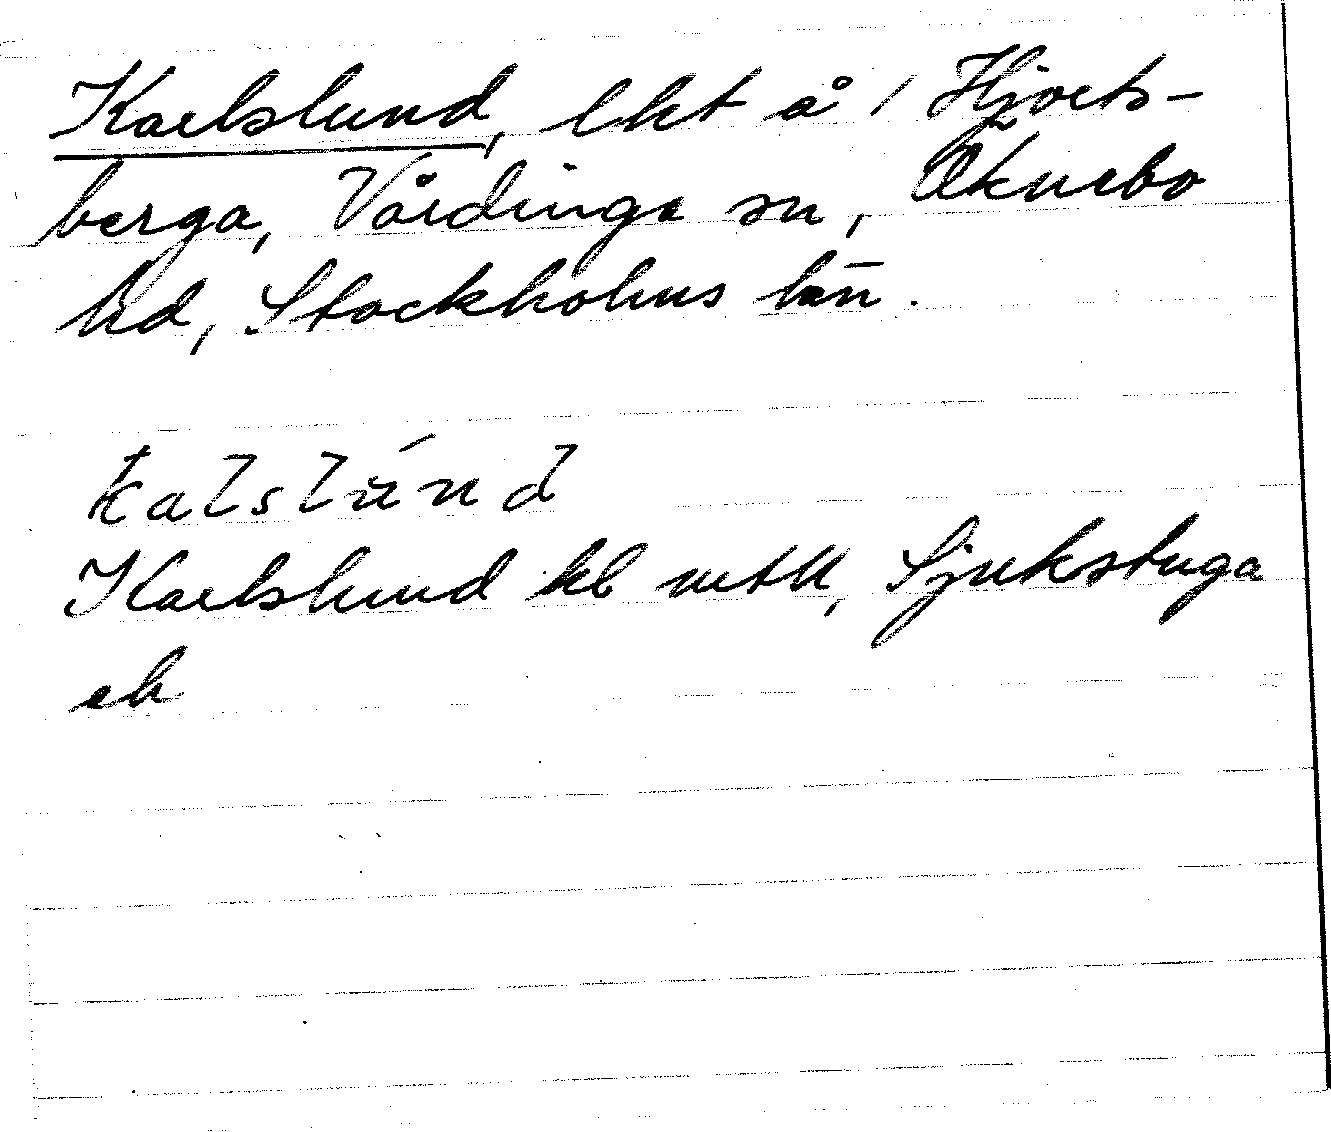 Karlslund, lht å 1 Hjorts-
berga, Vårdinga sn, Öknebo
hd, Stockholms län.
kalslund
Karlslund hl mtll, Sjukstuga
eb